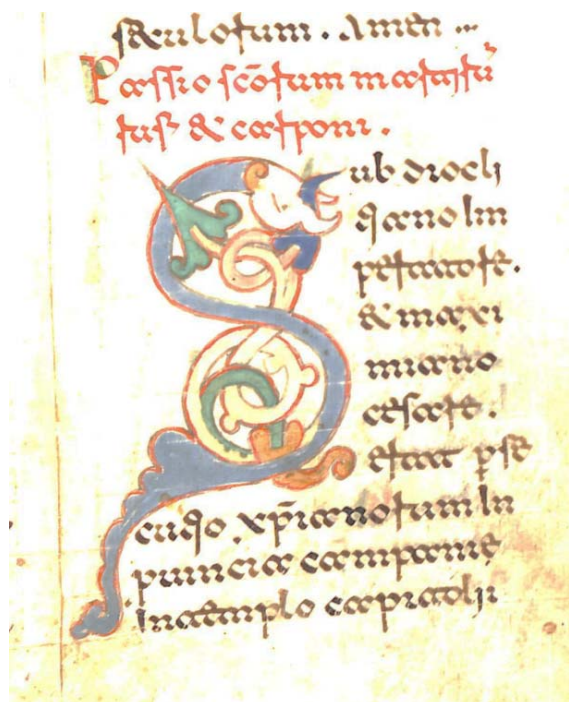 seculorum. Amen
Passio scōrum martyrū
rufi & carponi.
Sub diocli
tiano Im
peratore.
& maxi
miano
cesare.
erat pse
cutio xp̄ianorum In
puincia campanię
In templo capitolii